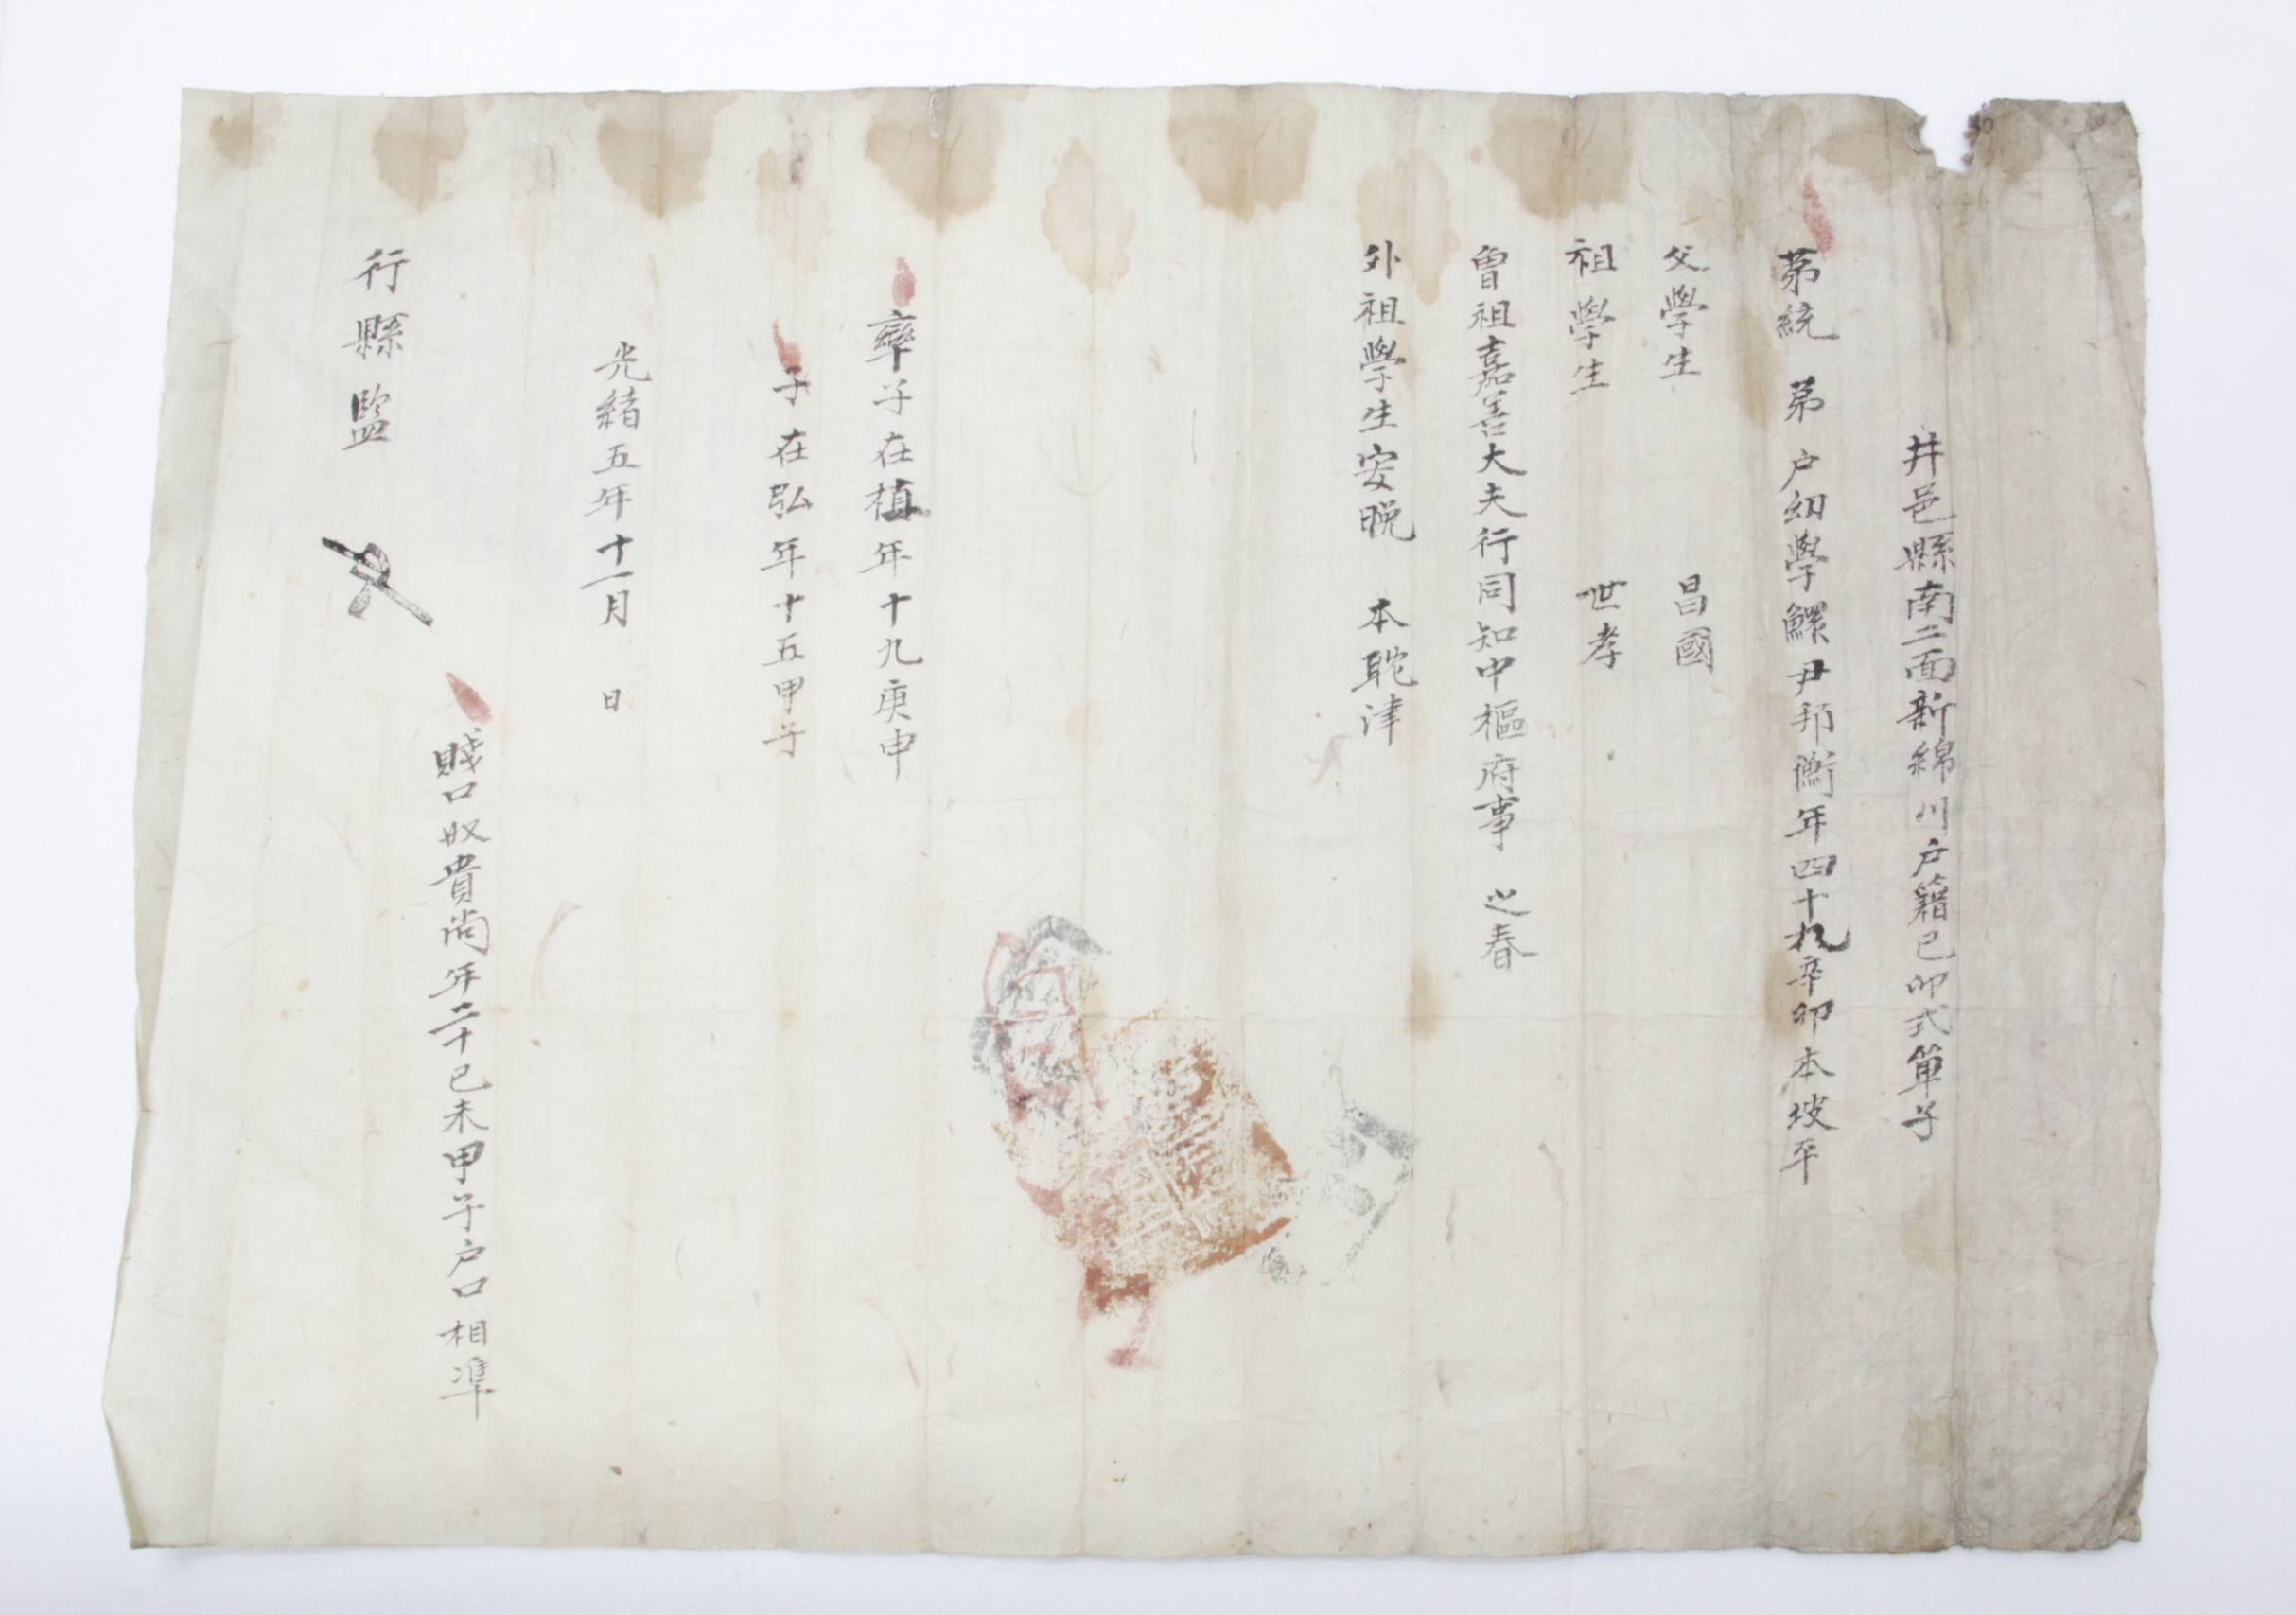 井邑縣南二面新綿川户籍己卯式單子
苐統 苐 户幼學鰥尹邦衡年四十九辛卯本坡平
父學生 昌國
祖學生 世孝
曾祖嘉善大夫行同知中樞府事 之春
外祖學生安晩 本耽津
率子在植年十九庚申
子在弘年十五甲子
光緖五年十一月 日
賤口奴貴尚年二十己未甲子户口相凖
行縣監